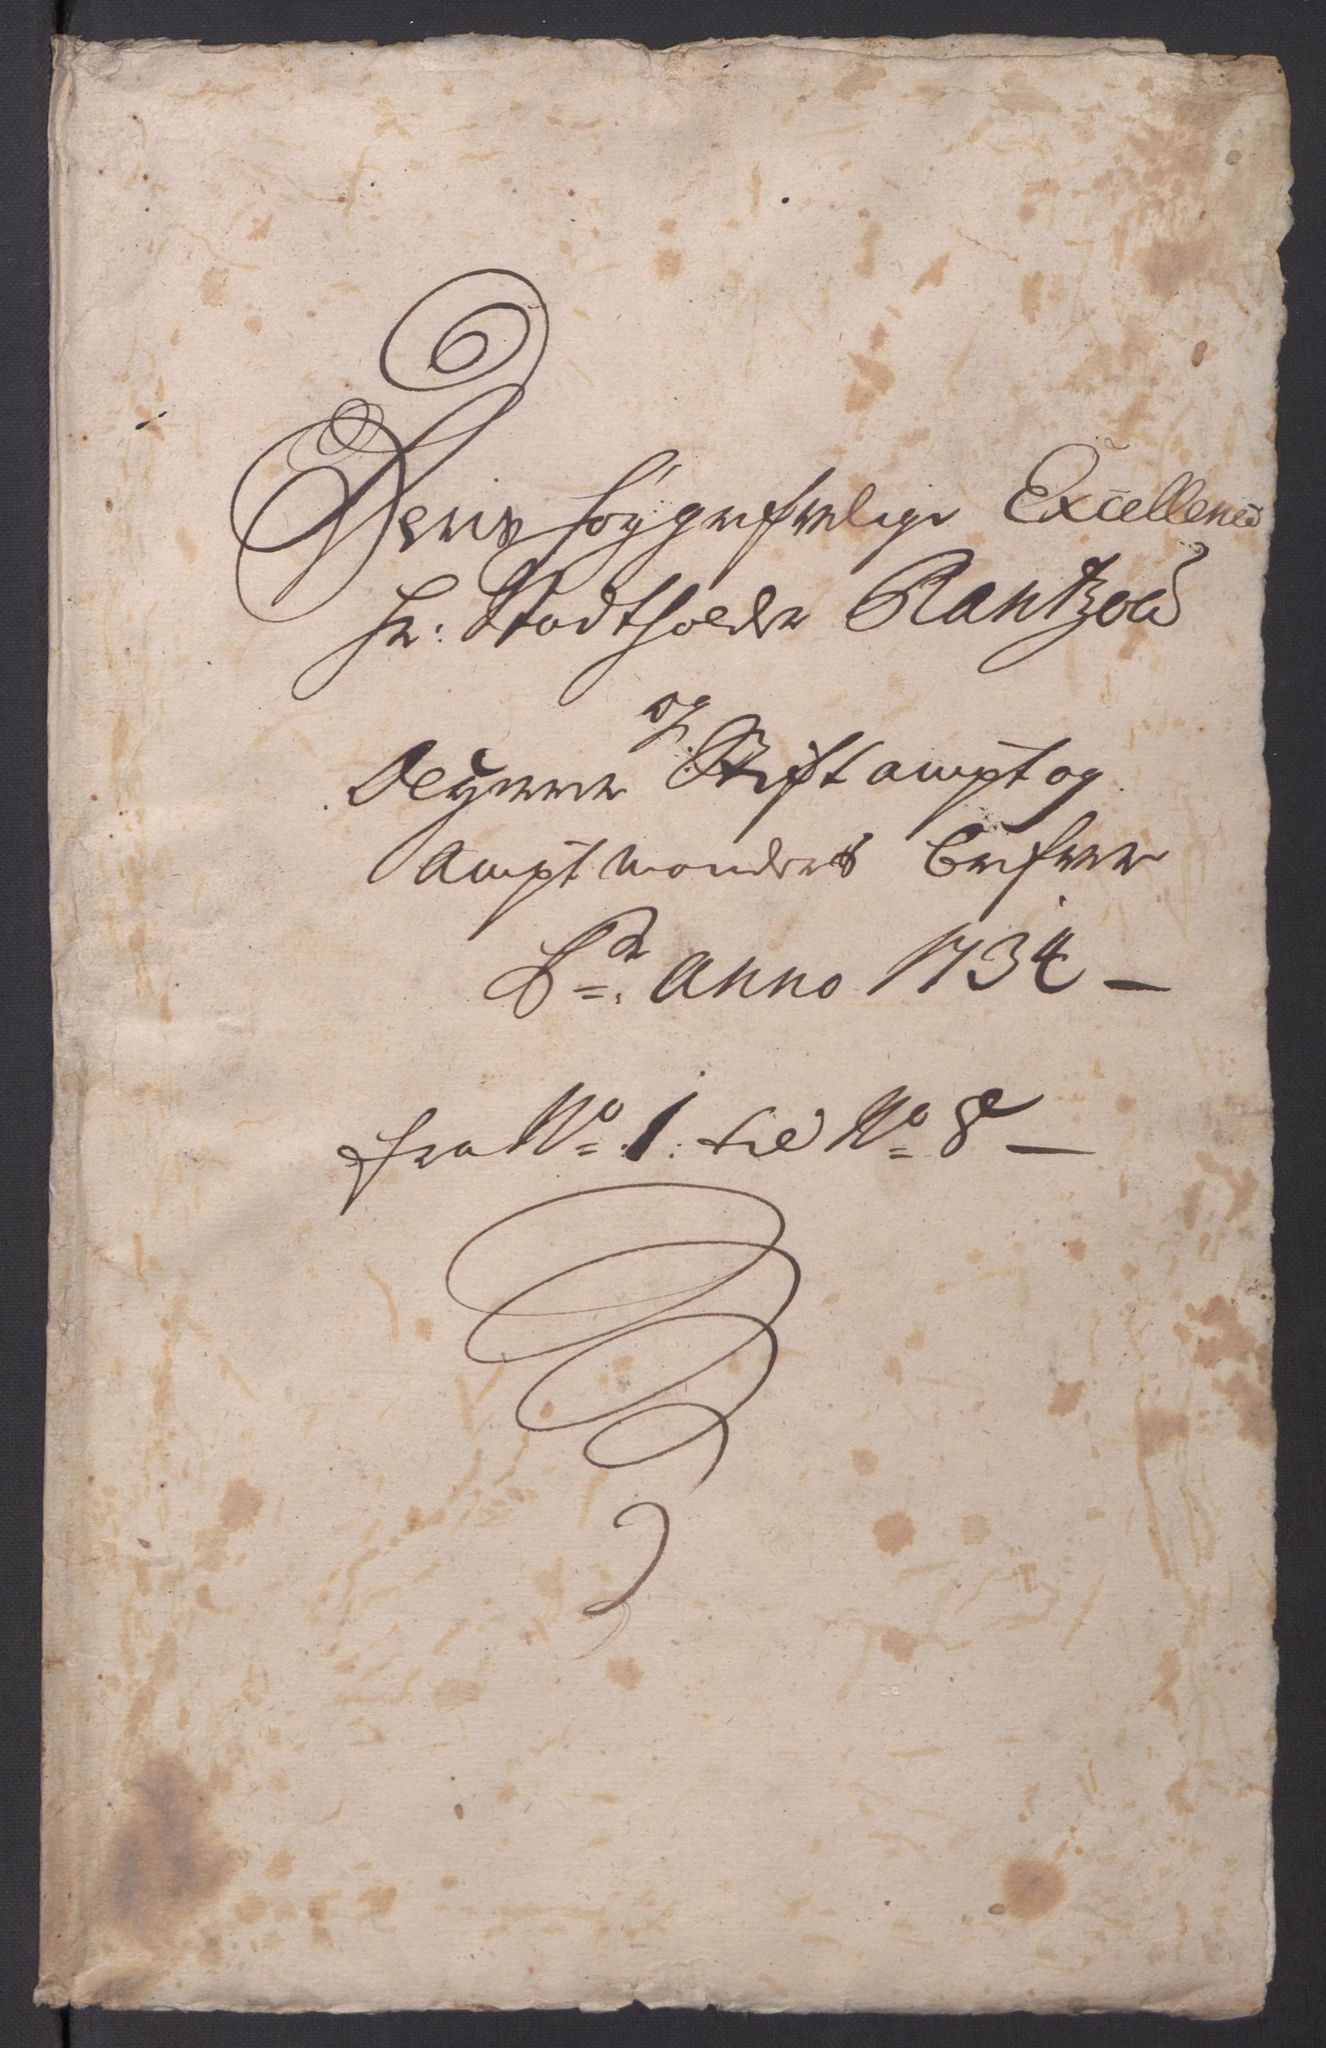 Deris høygrefvelige Excellence
Hr: Stadtholder Rantzou
og
Stiftampt og
Amptmandens brefver
Pro Anno 1734 —
fra No 1. til No 8 —